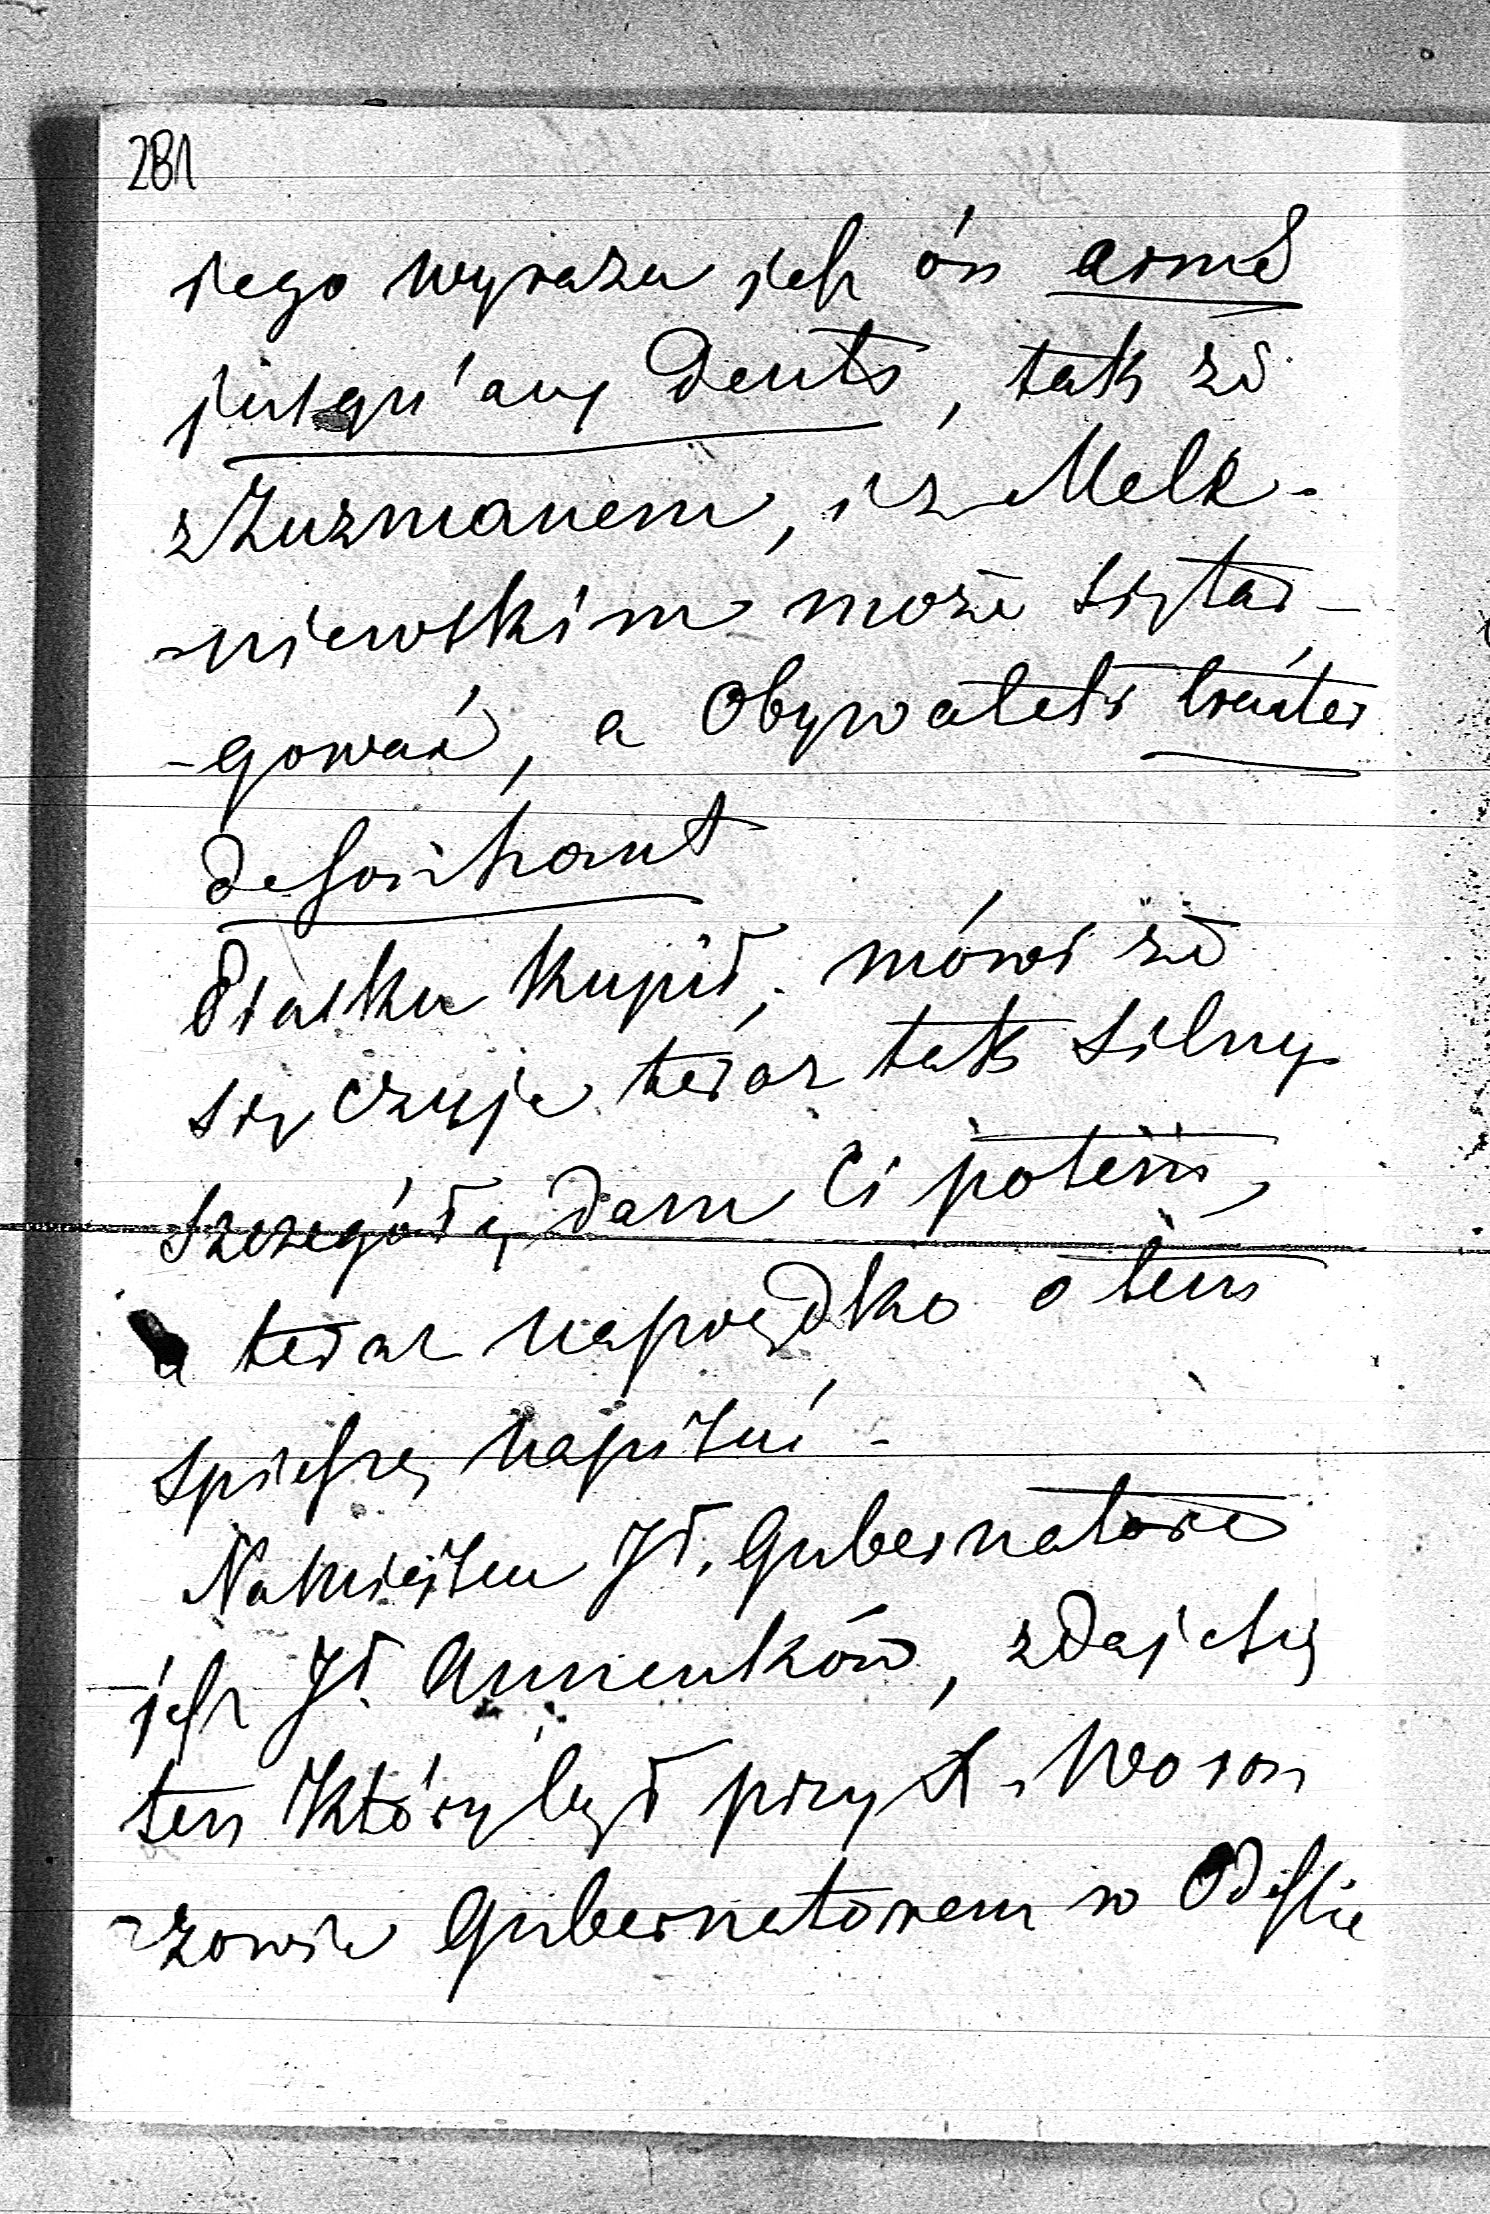 281
jego wyrazu jest ón armé
jusqu'aux dents, tak że
z Kuzmanem, i z Melk-
-niewskim może się tar-
-gować, a Obywateli traiter
de son haut
Piasku kupił, mówi że
się czuje teraz tak silny
szczegóły dam ci potem,
a teraz naprędko o tem
spieszę napisać -
Na miejscu Jł. Gubernatora
jest Jł. Annenków, zdaje się
ten który był przy X. Woron
-zowie Gubernatorem w Odessie